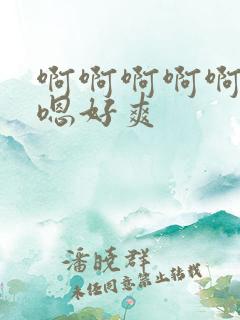 啊啊啊啊啊
嗯好爽
潘晓群
未经同意禁止转载